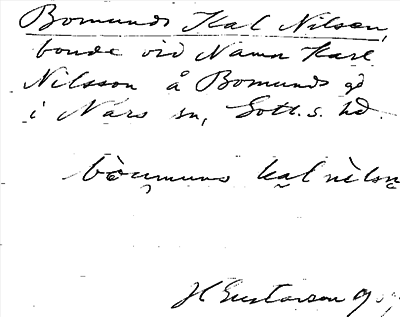 Bomunds Kal Nilsen,
bonde vid Namn Karl
Nilsson å Bomunds gd
i Närs sn, Gotl. s. hd.
kal nilsn
H Gustavson